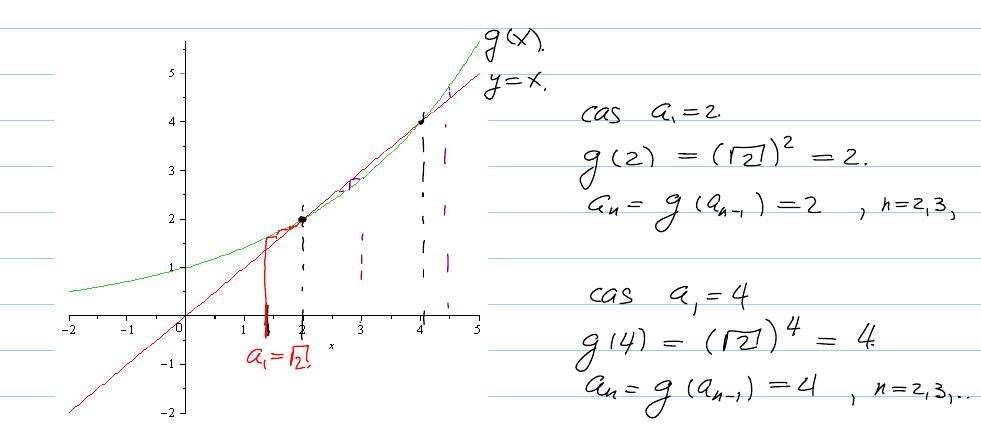 g(x).
y=x.
5
4
3
2
1
-2 -1 0 1 2 3 4 5
x
a₁=√2!
-1
-2
cas a₁=2.
g(2) = (√2)² = 2.
aₙ = g(aₙ₋₁) = 2 , n=2,3,
cas a₁=4
g(4) = (√2)⁴ = 4.
aₙ = g(aₙ₋₁) = 4 , n=2,3,..